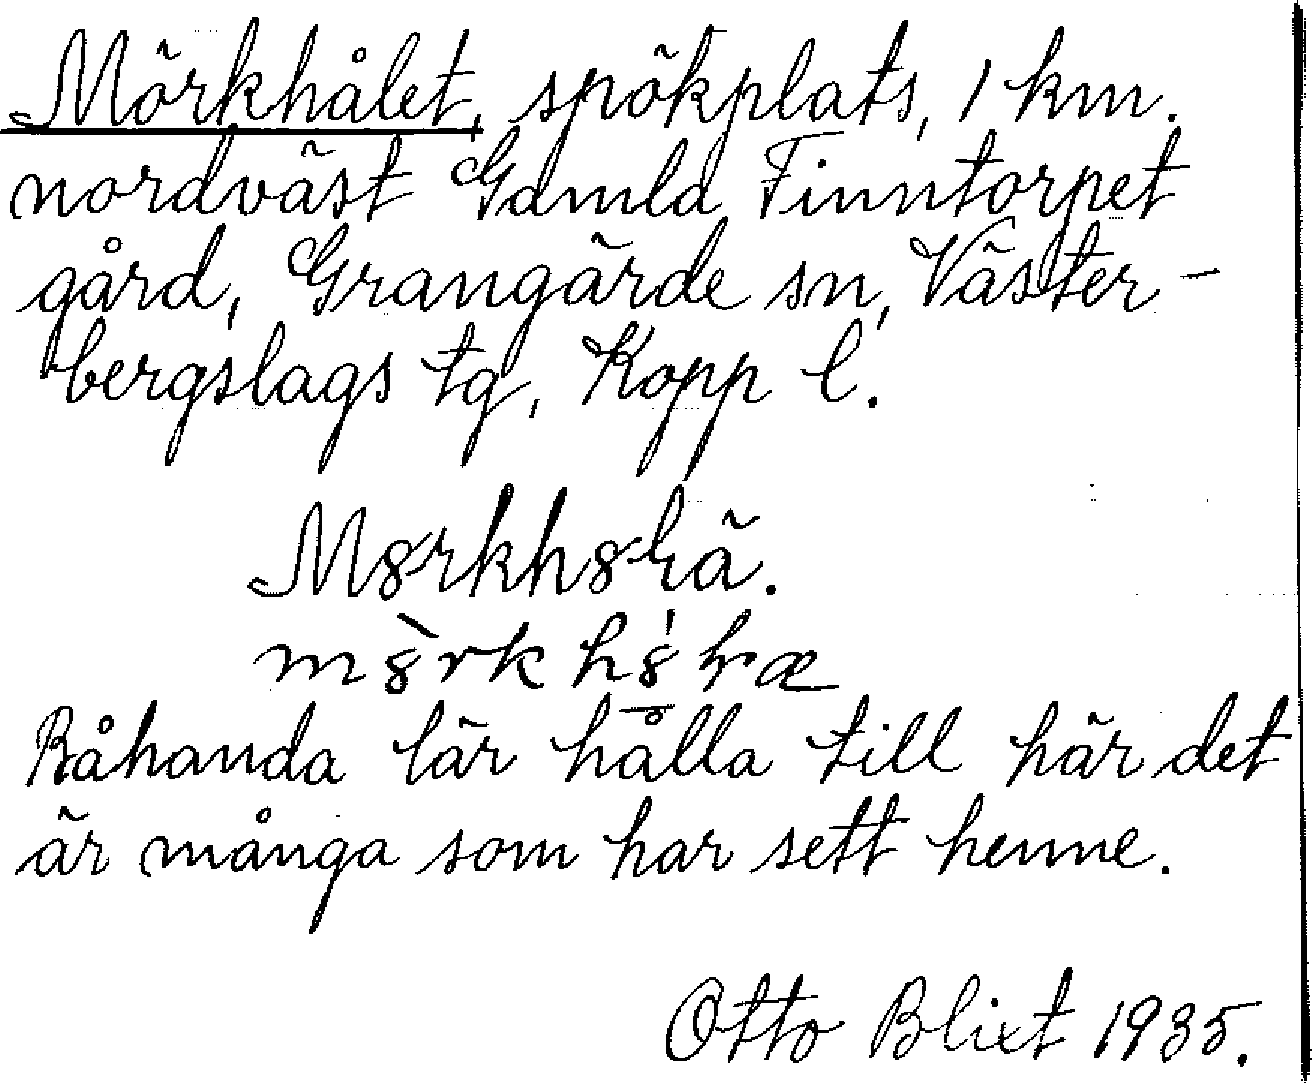 Mörkhålet, spökplats, 1 km.
nordväst Gamla Finntorpet
gård, Grangärde sn, Väster-
bergslags tg, Kopp l.
Råhanda lär hålla till här det
är många som har sett henne.
Otto Blixt 1935.